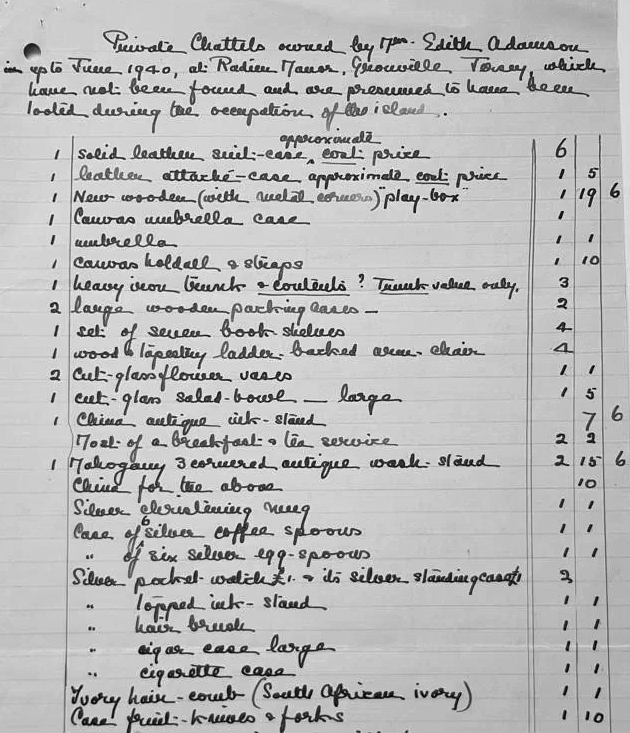 Private Chattels owned by Mrs. Edith Adamson
up to June 1940, at Radier Manor, Grouville Jersey, which
have not been found and are presumed to have been
looted during the occupation of the island.
approximate
1 solid leather suit-case, cost price 6
1 leather attaché-case approximate cost price 1 5
1 New wooden (with metal corners) "play-box" 1 19 6
1 Canvas umbrella case 1
1 umbrella 1 1
1 canvas holdall & straps 1 10
1 heavy iron trunk & contents? Trunk value only. 3
2 large wooden packing cases — 2
1 set of seven book shelves 4
1 wood & tapestry ladder-backed arm-chair 4
2 Cut-glass flower vases 1 1
1 cut-glass salad-bowl — large 1 5
1 China antique ink-stand 7 6
Most of a breakfast & tea service 2 2
1 Mahogany 3 cornered antique wash-stand 2 15 6
China for the above 10
Silver christening mug 1 1
Case of 6 silver coffee spoons 1 1
" of six silver egg-spoons 1 1
Silver pocket-watch £1. & its silver standing case £1 2
" topped ink-stand 1 1
" hair brush 1 1
" cigar case large 1 1
" cigarette case 1 1
Ivory hair-comb (South African ivory) 1 1
Case fruit-knives & forks 1 10